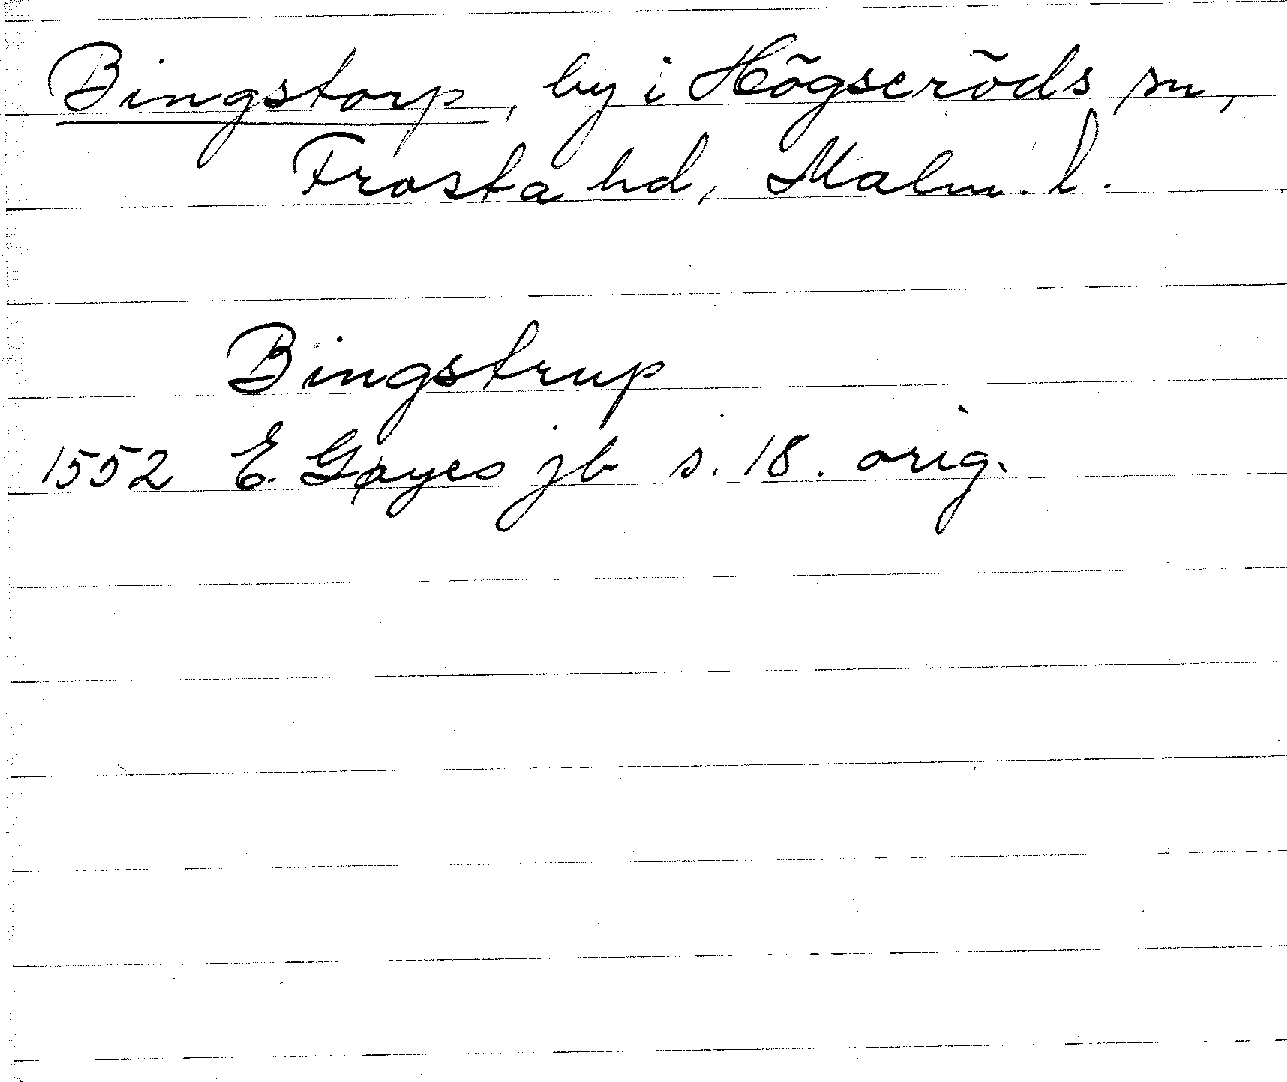 Bingstorp, by i Högseröds sn,
Frosta hd, Malm. l.
Bingstrup
1552 E. Gøyes jb s. 18. orig.